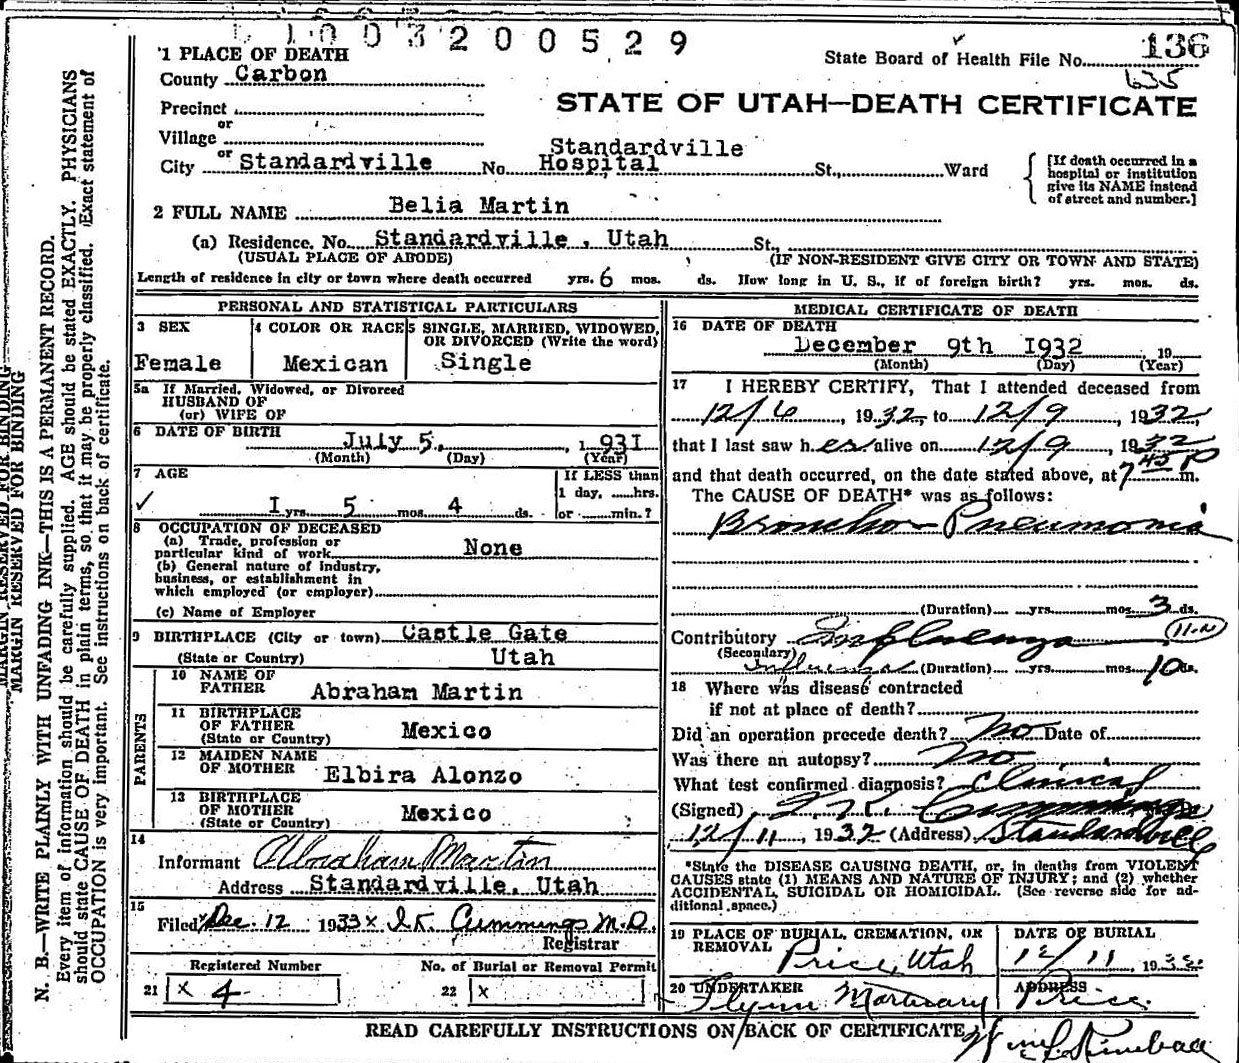 1003200529
1 PLACE OF DEATH
State Board of Health File No. 136
County Carbon
635
Precinct
STATE OF UTAH—DEATH CERTIFICATE
or
Village
or
City Standardville No. Standardville Hospital St., Ward
[If death occurred in a
hospital or institution
give its NAME instead
of street and number.]
2 FULL NAME Belia Martin
(a) Residence. No. Standardville , Utah St.,
(USUAL PLACE OF ABODE) (IF NON-RESIDENT GIVE CITY OR TOWN AND STATE)
Length of residence in city or town where death occurred yrs. 6 mos. ds. How long in U. S., if of foreign birth? yrs. mos. ds.
PERSONAL AND STATISTICAL PARTICULARS
3 SEX
Female
4 COLOR OR RACE
Mexican
5 SINGLE, MARRIED, WIDOWED,
OR DIVORCED (Write the word)
Single
5a If Married, Widowed, or Divorced
HUSBAND OF
(or) WIFE OF
6 DATE OF BIRTH July 5, 1931
(Month) (Day) (Year)
7 AGE
I yrs. 5 mos. 4 ds.
If LESS than
1 day, ......hrs.
or ......min.?
8 OCCUPATION OF DECEASED
(a) Trade, profession or
particular kind of work None
(b) General nature of industry,
business, or establishment in
which employed (or employer)
(c) Name of Employer
9 BIRTHPLACE (City or town) Castle Gate
(State or Country) Utah
PARENTS
10 NAME OF
FATHER Abraham Martin
11 BIRTHPLACE
OF FATHER Mexico
(State or Country)
12 MAIDEN NAME
OF MOTHER Elbira Alonzo
13 BIRTHPLACE
OF MOTHER Mexico
(State or Country)
14
Informant Abraham Martin
Address Standardville, Utah
15
Filed Dec. 12 1933 x J.K. Cummings M.D.
Registrar
Registered Number No. of Burial or Removal Permit
21 x 4 22 x
MEDICAL CERTIFICATE OF DEATH
16 DATE OF DEATH
December 9th I932 , 19
(Month) (Day) (Year)
17 I HEREBY CERTIFY, That I attended deceased from
12/6, 1932, to 12/9, 1932,
that I last saw her alive on 12/9, 1932
and that death occurred, on the date stated above, at 7 45 P m.
The CAUSE OF DEATH* was as follows:
Broncho-Pneumonia
(Duration) yrs. mos. 3 ds.
Contributory Influenza 11-a
(Secondary)
Influenza (Duration) yrs. mos. 10 ds.
18 Where was disease contracted
if not at place of death?
Did an operation precede death? No Date of
Was there an autopsy? No
What test confirmed diagnosis? Clinical
(Signed) J.K. Cummings
12/11, 1932 (Address) Standardville
*State the DISEASE CAUSING DEATH, or, in deaths from VIOLENT
CAUSES state (1) MEANS AND NATURE OF INJURY; and (2) whether
ACCIDENTAL, SUICIDAL OR HOMICIDAL. (See reverse side for ad-
ditional space.)
19 PLACE OF BURIAL, CREMATION, OR
REMOVAL Price, Utah
DATE OF BURIAL
12/11, 1932
20 UNDERTAKER
Flynn Mortuary
ADDRESS
Price.
READ CAREFULLY INSTRUCTIONS ON BACK OF CERTIFICATE
MARGIN RESERVED FOR BINDING
MARGIN RESERVED FOR BINDING
N. B.—WRITE PLAINLY WITH UNFADING INK—THIS IS A PERMANENT RECORD.
Every item of information should be carefully supplied. AGE should be stated EXACTLY. PHYSICIANS
should state CAUSE OF DEATH in plain terms, so that it may be properly classified. Exact statement of
OCCUPATION is very important. See instructions on back of certificate.